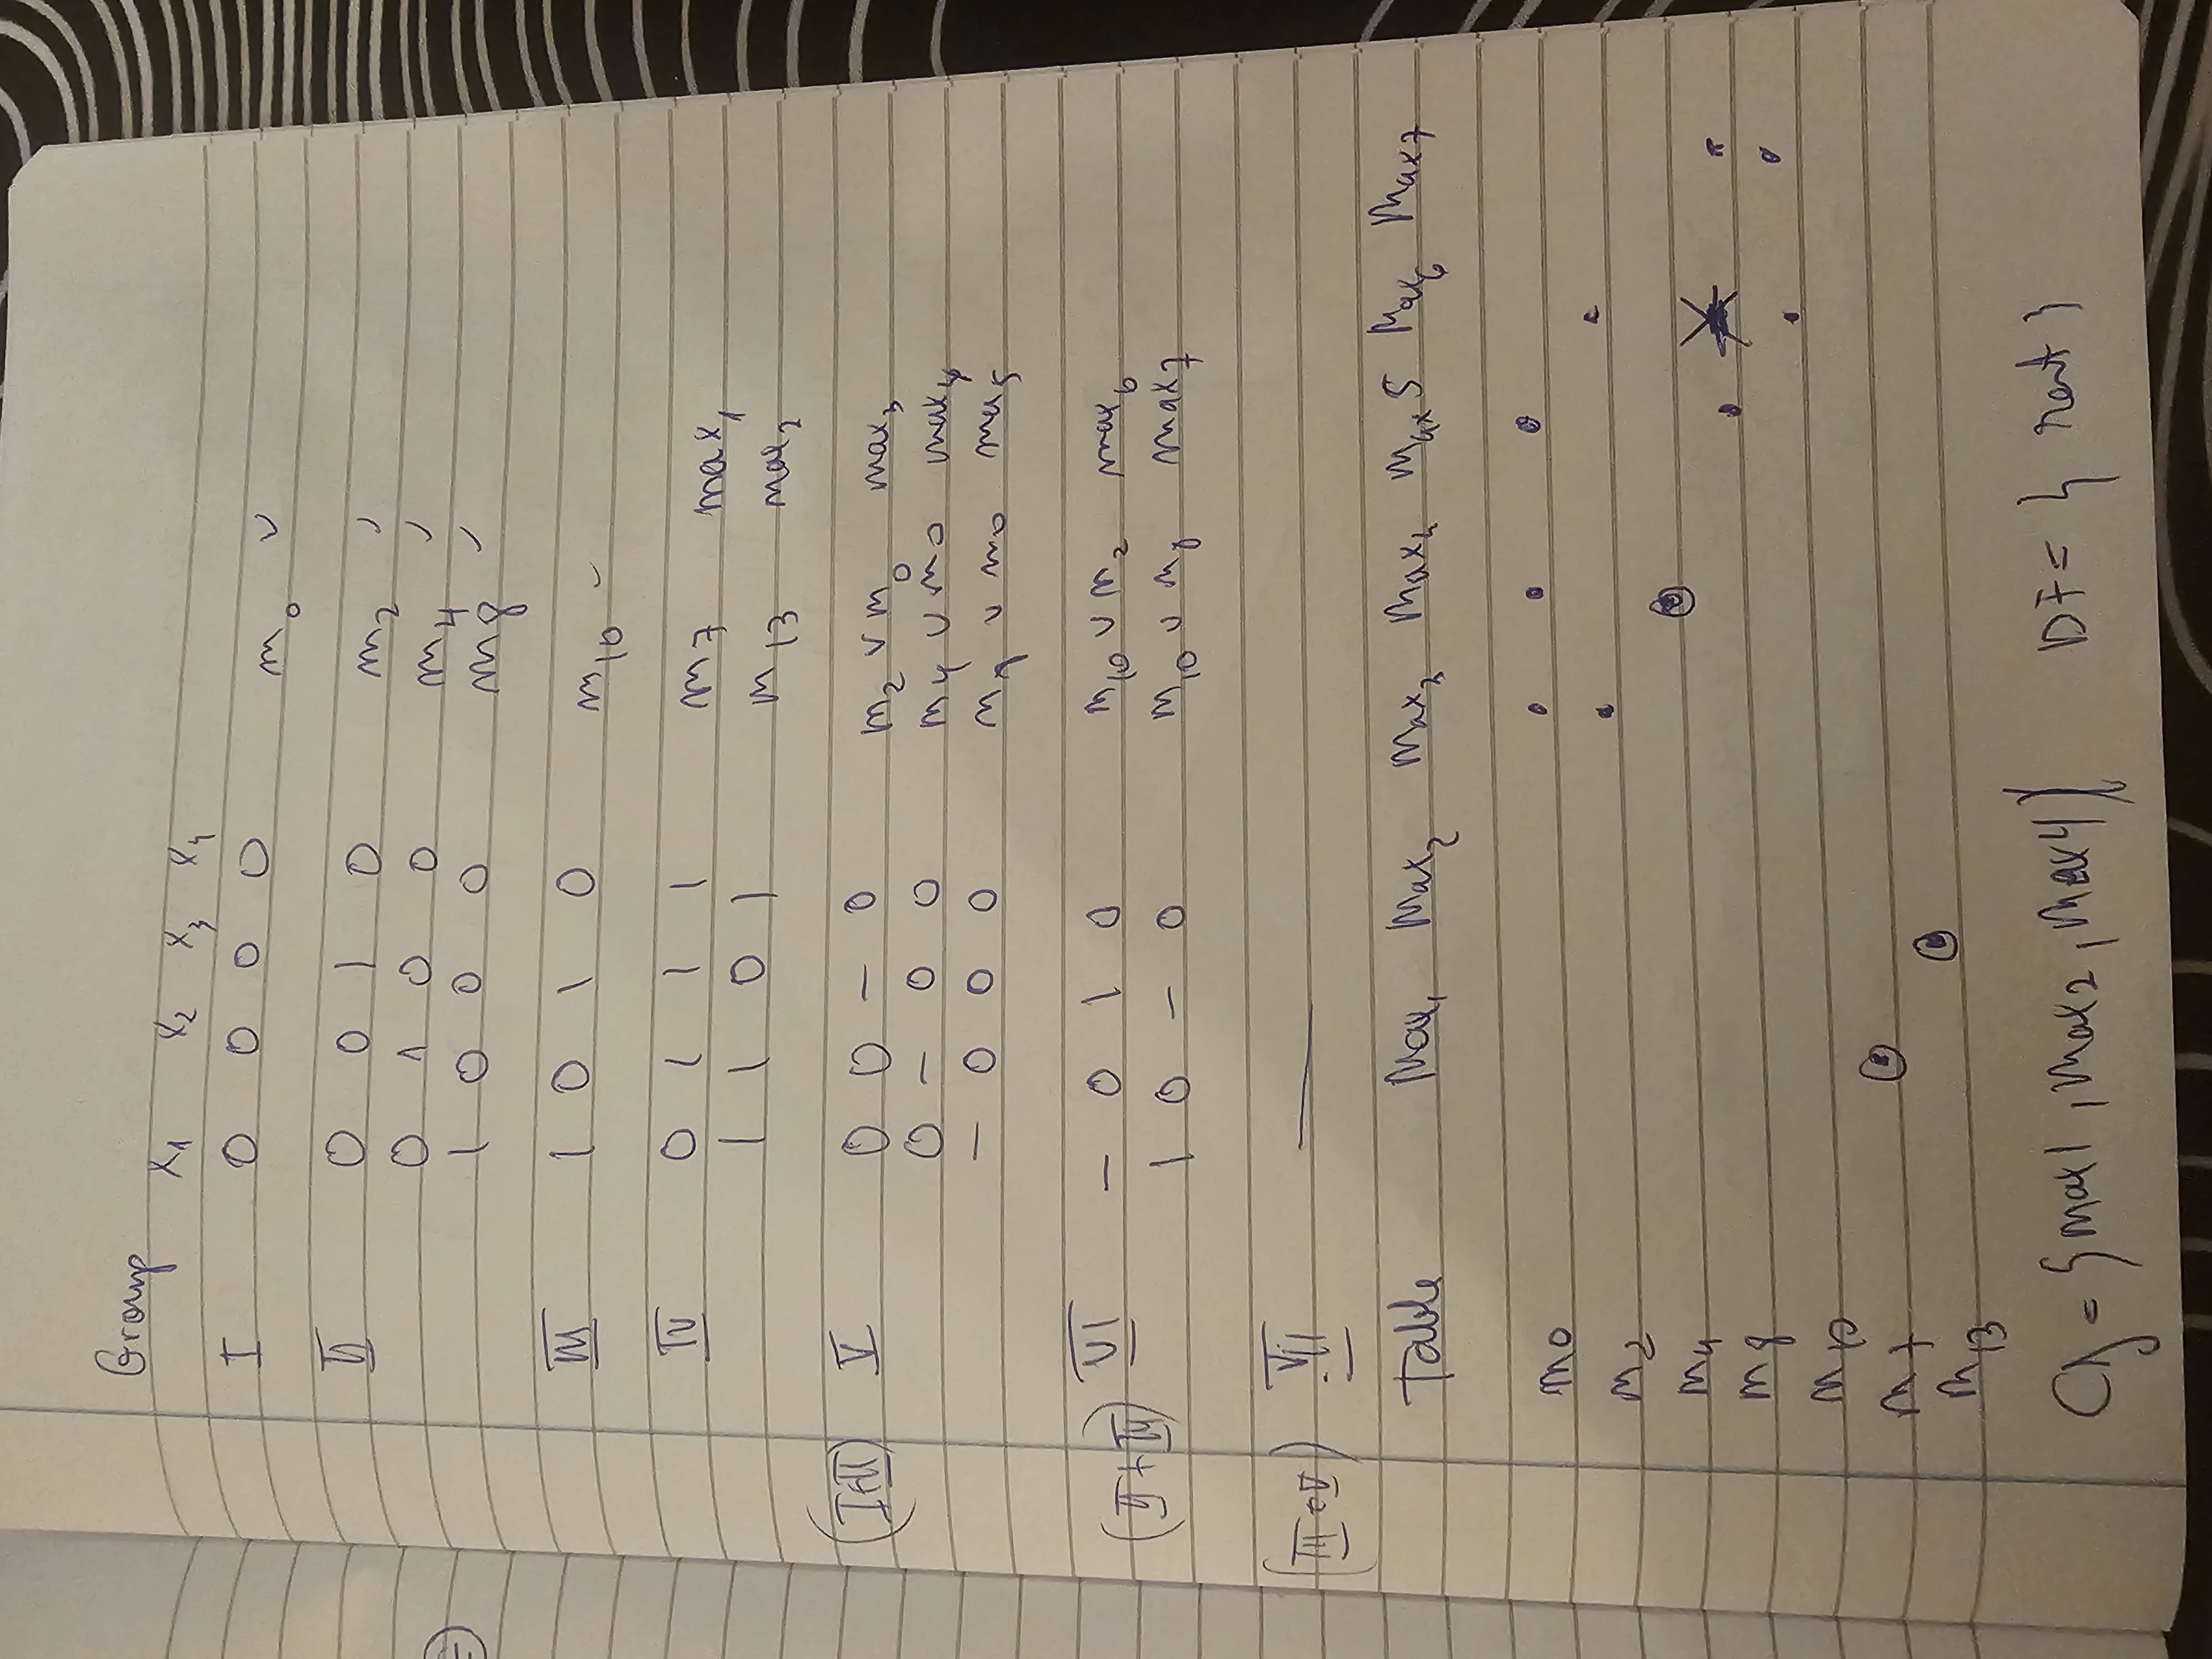 Group
x1 x2 x3 x4
I 0 0 0 0 m0 ✓
II 0 0 1 0 m2 ✓
0 1 0 0 m4 ✓
1 0 0 0 m8 ✓
III 1 0 1 0 m10 ✓
IV 0 1 1 1 m7 max1
1 1 0 1 m13 max2
(I+II) V 0 0 – 0 m2 ∨ m0 max3
0 – 0 0 m4 ∨ m0 max4
– 0 0 0 m8 ∨ m0 max5
(II+III) VI – 0 1 0 m10 ∨ m2 max6
1 0 – 0 m10 ∨ m8 max7
VII —
Table Max1 Max2 Max3 Max4 Max5 Max6 Max7
m0
m2
m4
m8
m10
m7
m13
= {Max1, Max2, Max4} DF = { rest }